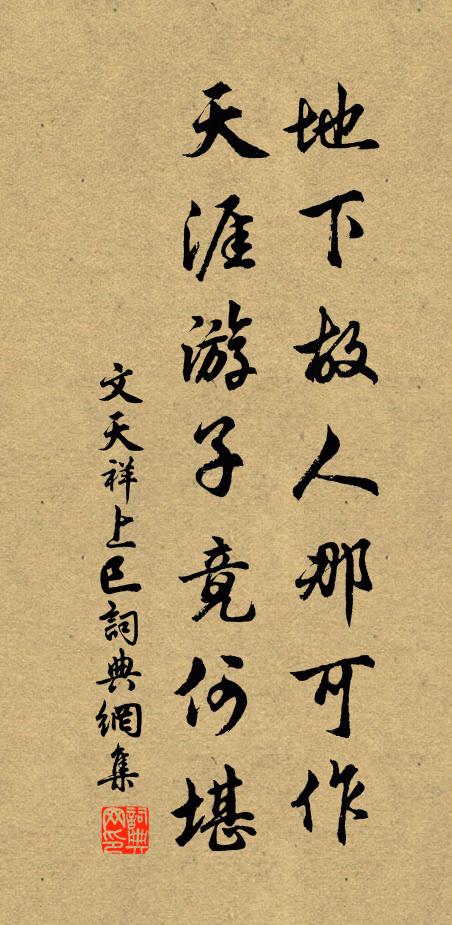 地下故人那可作
天涯游子竟何堪
文天祥上巳詞典網集
詞典网印